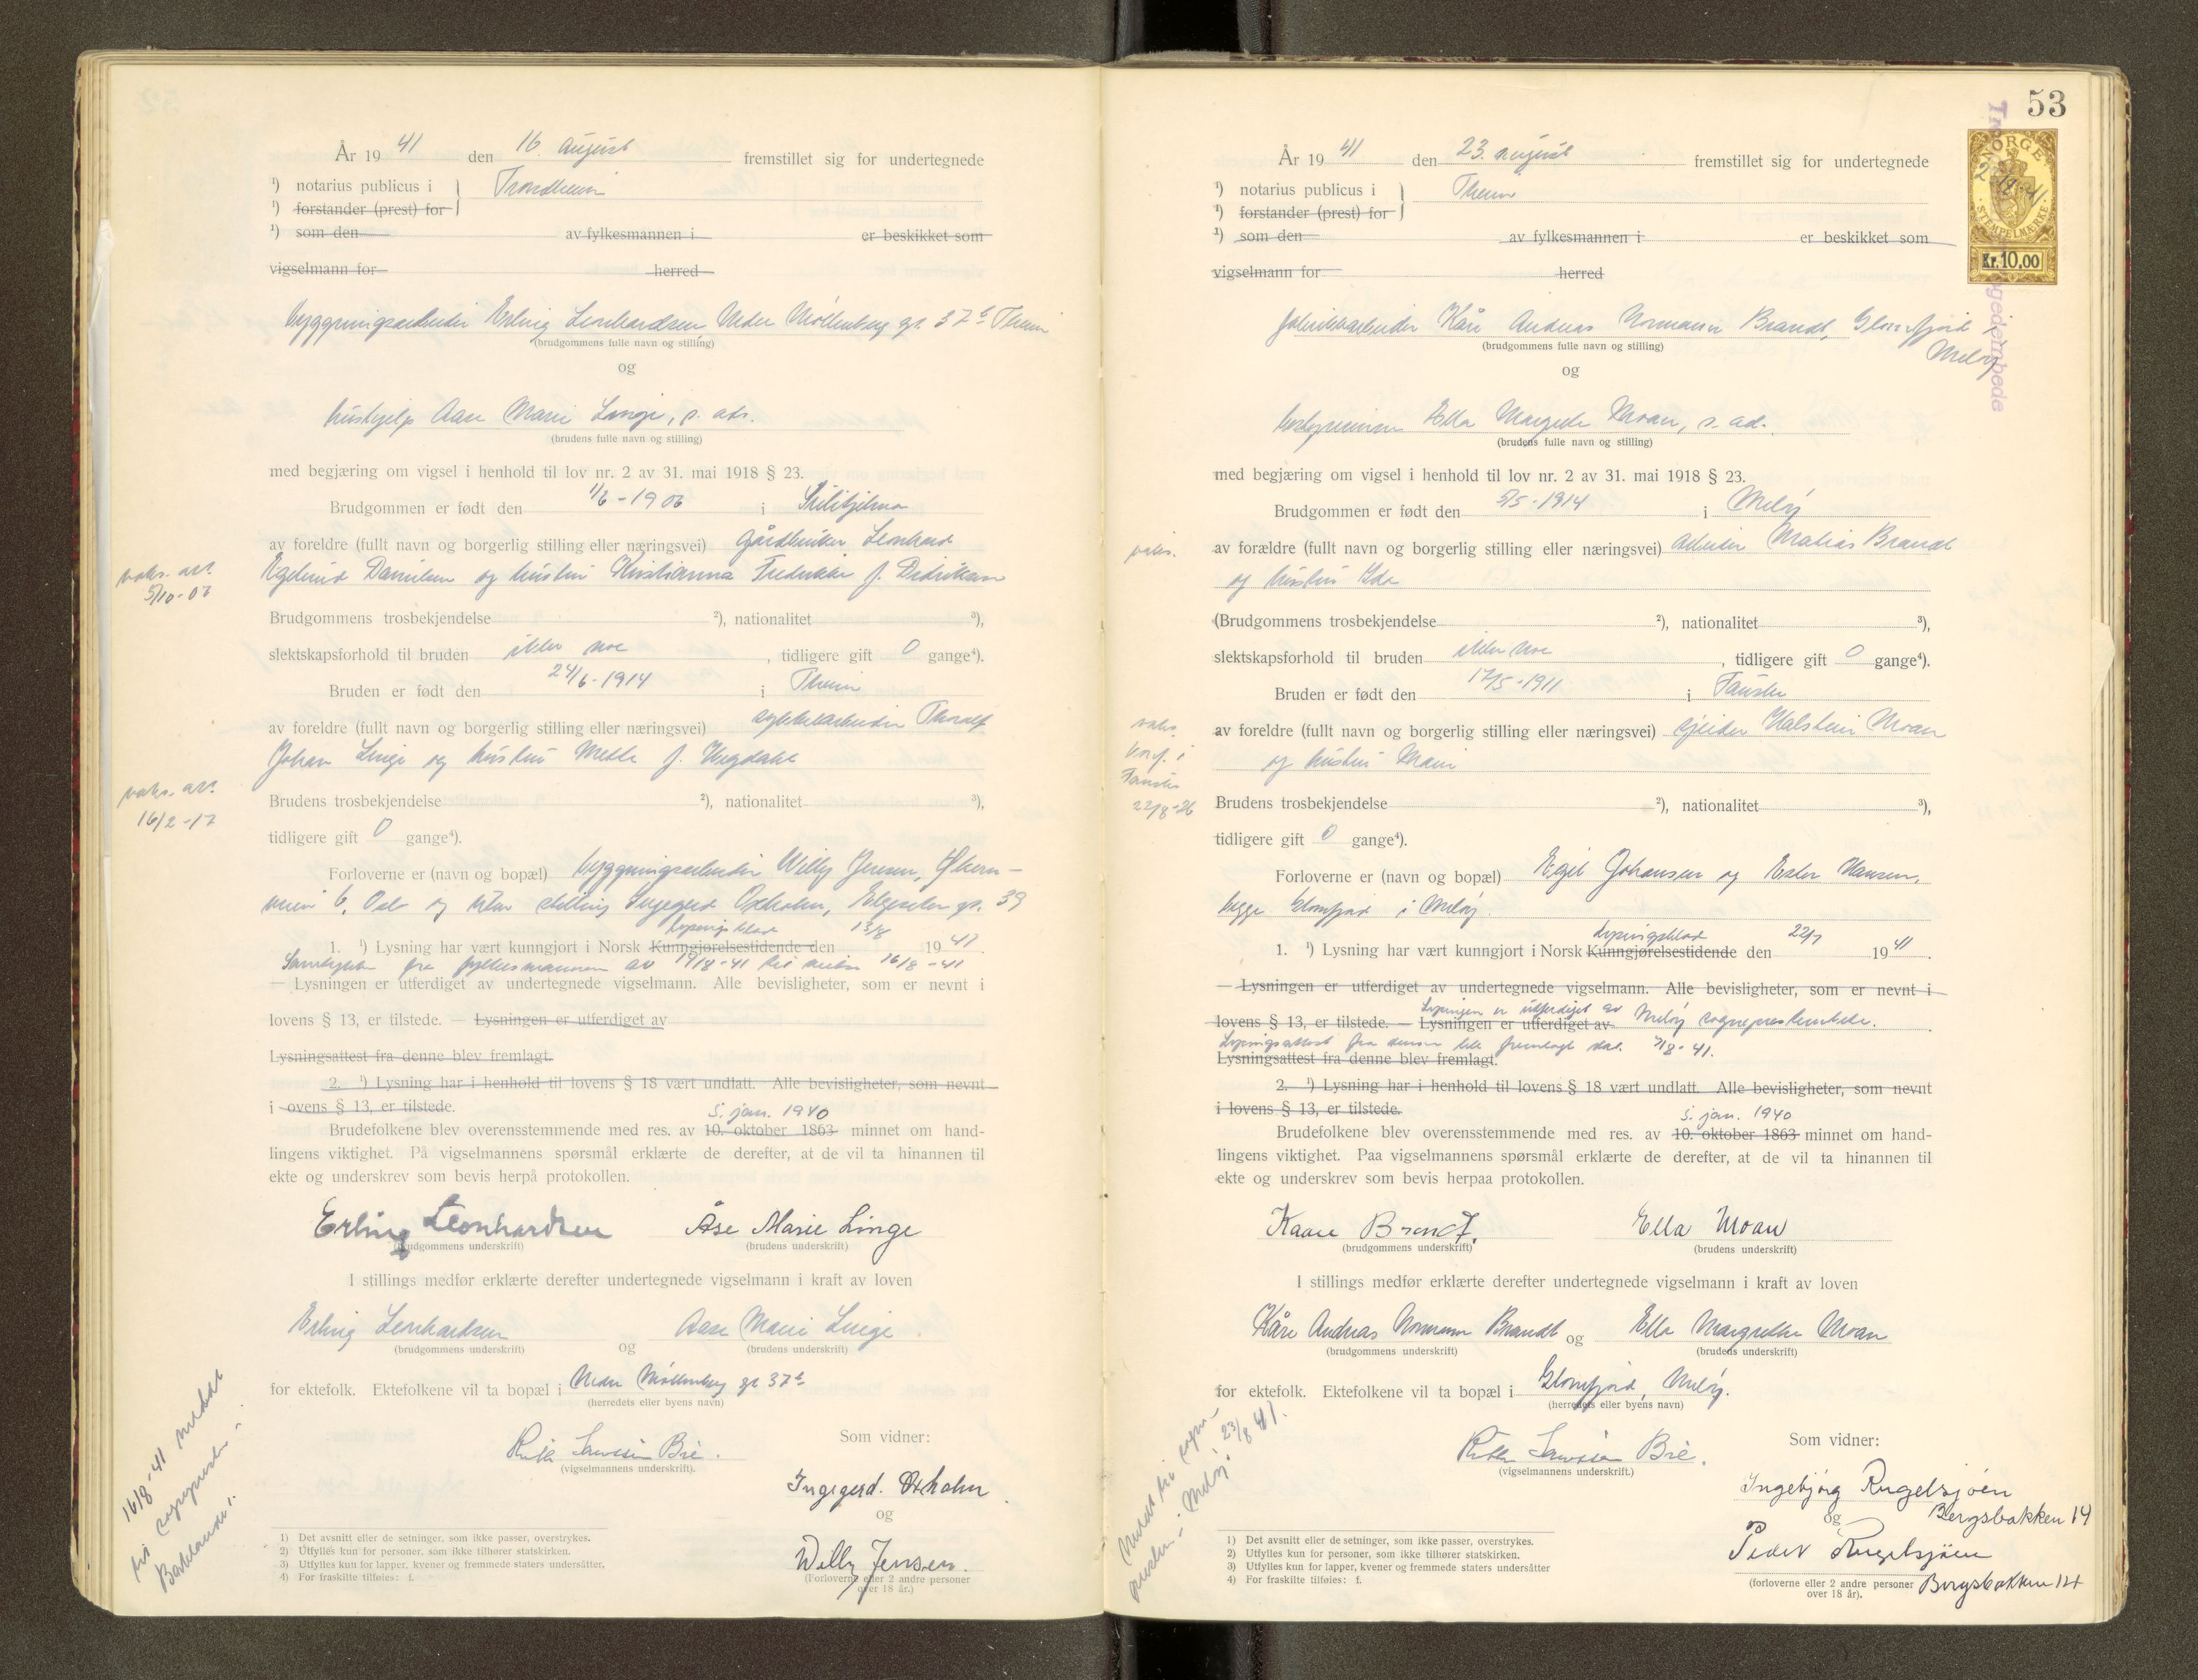 År 19 41 den 16. august fremstillet sig for undertegnede
¹) notarius publicus i Trondheim
¹) forstander (prest) for
¹) som den av fylkesmannen i er beskikket som
vigselmann for herred
byggningsarbeider Erling Leonhardsen Nedre Möllenberg gt. 37 Theim
(brudgommens fulle navn og stilling)
og
hushjelp Aase Marie Linge, s. ads.
(brudens fulle navn og stilling)
med begjæring om vigsel i henhold til lov nr. 2 av 31. mai 1918 § 23.
Brudgommen er født den 1/6 - 1906 i Sulitjelma
av foreldre (fullt navn og borgerlig stilling eller næringsvei) gårdbruker Leonhard
Danielsen og hustru Kristianna Fredrikke f. Didriksen
vaks. att.
5/10-07
Brudgommens trosbekjendelse ²), nationalitet ³),
slektskapsforhold til bruden ikke noe, tidligere gift 0 gange⁴).
Bruden er født den 24/6 - 1914 i Theim
av foreldre (fullt navn og borgerlig stilling eller næringsvei) Thoralf
Johan Linge og hustru Mette f. Hegdahl
vaks. att.
16/2-17
Brudens trosbekjendelse ²), nationalitet ³),
tidligere gift 0 gange⁴).
Forloverne er (navn og bopæl) byggningsarbeider Willy Jensen, Økern-
veien 6, Oslo og uten stilling Ingegerd Oxholm, Elgeseter gt. 39
1. ¹) Lysning har vært kunngjort i Norsk Kunngjørelsestidende den lysningsblad 13/8 19 41
Samtykke fra fylkesmannen av 14/8-41 til vielse 16/8-41
— Lysningen er utferdiget av undertegnede vigselmann. Alle bevisligheter, som er nevnt i
lovens § 13, er tilstede. — Lysningen er utferdiget av
Lysningsattest fra denne blev fremlagt.
2. ¹) Lysning har i henhold til lovens § 18 vært undlatt. Alle bevisligheter, som nevnt
i ovens § 13, er tilstede.
5. jan. 1940
Brudefolkene blev overensstemmende med res. av 10. oktober 1863 minnet om hand-
lingens viktighet. På vigselmannens spørsmål erklærte de derefter, at de vil ta hinannen til
ekte og underskrev som bevis herpå protokollen.
Erling Leonhardsen Åse Marie Linge
(brudgommens underskrift) (brudens underskrift)
I stillings medfør erklærte derefter undertegnede vigselmann i kraft av loven
Erling Leonhardsen og Aase Marie Linge
(brudgommens underskrift) (brudens underskrift)
for ektefolk. Ektefolkene vil ta bopæl i Nedre Möllenberg gt 37
(herredets eller byens navn)
(vigselmannens underskrift).
Som vidner:
Ingegerd. Oxholm.
og
Willy Jensen.
(Forloverne eller 2 andre personer
over 18 år.)
16/8-41 meddelt
til sogneprest
Baklandet.
1) Det avsnitt eller de setninger, som ikke passer, overstrykes.
2) Utfylles kun for personer, som ikke tilhører statskirken.
3) Utfylles kun for lapper, kvener og fremmede staters undersåtter,
4) For fraskilte tilføies: f.
53
NORGE
STEMPELMÆRKE
Kr. 10,00
År 19 41 den 23. august fremstillet sig for undertegnede
¹) notarius publicus i Theim
¹) forstander (prest) for
¹) som den av fylkesmannen i er beskikket som
vigselmann for herred
fabrikkarbeider Kåre Andreas Normann Brandt, Glomfjord i
Meløy
(brudgommens fulle navn og stilling)
og
bestyrerinne Ella Margrete Moan, s. ad.
(brudens fulle navn og stilling)
med begjæring om vigsel i henhold til lov nr. 2 av 31. mai 1918 § 23.
Brudgommen er født den 5/5 - 1914 i Meløy
vaks.
av forældre (fullt navn og borgerlig stilling eller næringsvei) arbeider Matias Brandt
og hustru Ida
(Brudgommens trosbekjendelse ²), nationalitet ³),
slektskapsforhold til bruden ikke noe, tidligere gift 0 gange⁴).
Bruden er født den 17/5 - 1911 i Fauske
av foreldre (fullt navn og borgerlig stilling eller næringsvei) Halstein Moan
og hustru Marie
vaks.
konf. i
Fauske
22/8-26
Brudens trosbekjendelse ²), nationalitet ³),
tidligere gift 0 gange⁴).
Forloverne er (navn og bopæl) Egil Johansen og Ester Hansen,
begge Glomfjord i Meløy.
1. ¹) Lysning har vært kunngjort i Norsk Kunngjørelsestidende lysningsblad den 22/7 19 41.
— Lysningen er utferdiget av undertegnede vigselmann. Alle bevisligheter, som er nevnt i
lovens § 13, er tilstede. — Lysningen er utferdiget av Lysningen er utferdiget av Meløy sogneprestembete.
Lysningsattest fra denne ble fremlagt dat. 7/8-41.
Lysningsattest fra denne blev fremlagt.
2. ¹) Lysning har i henhold til lovens § 18 vært undlatt. Alle bevisligheter, som nevnt
i lovens § 13, er tilstede.
5. jan. 1940
Brudefolkene blev overensstemmende med res. av 10. oktober 1863 minnet om hand-
lingens viktighet. Paa vigselmannens spørsmål erklærte de derefter, at de vil ta hinannen til
ekte og underskrev som bevis herpaa protokollen.
Kaare Brandt. Ella Moan
(brudgommens underskrift) (brudens underskrift)
I stillings medfør erklærte derefter undertegnede vigselmann i kraft av loven
Kåre Andreas Normann Brandt og Ella Margrethe Moan
(brudgommens underskrift) (brudens underskrift)
for ektefolk. Ektefolkene vil ta bopæl i Glomfjord, Meløy.
(herredets eller byens navn)
(vigselmannens underskrift.)
Som vidner:
Ingebjørg Rugelsjøen
Bergsbakken 14
og
Peder Rugelsjøen
Bergsbakken 14
(forloverne eller 2 andre personer
over 18 år).
Meldt til sogne-
presten i Meløy 23/8 41.
1) Det avsnitt eller de setninger, som ikke passer, overstrykes.
2) Utfylles kun for personer, som ikke tilhører statskirken.
3) Utfylles kun for lapper, kvener og fremmede staters undersåtter
4) For fraskilte tilføies: f.